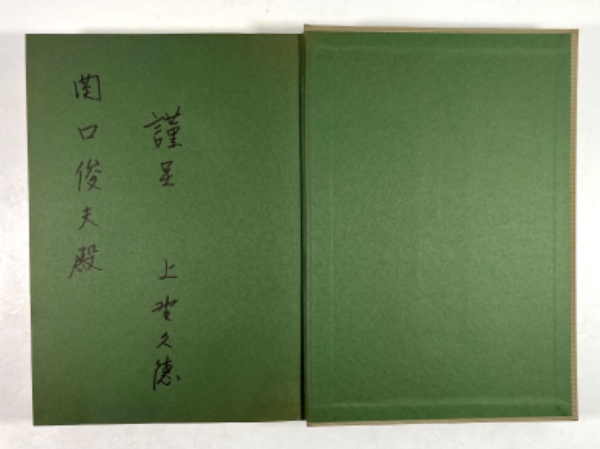 謹呈 上野久徳
関口俊夫殿